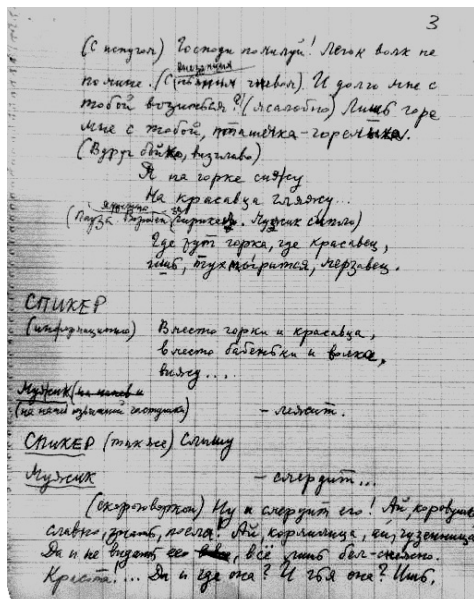 3
(С испугом) Господи помилуй! Легок волк не
внезапным
помине. (С пьяным гневом). И долго мне с
тобой возиться? (жалобно) Лишь горе
мне с тобой, пташечка-горемыка.
(Вдруг бойко, визгливо)
Я на горке сижу
На красавца гляжу...
(Пауза. Возится Мужик сипло)
Где тут горка, где красавец,
ишь, топырится, мерзавец.
СПИКЕР
(информационно) Вместо горки и красавца,
вместо бабёнки и волка,
вижу....
Мужик (на напев и
(на напев частушки) – лежит.
СПИКЕР (также) Слышу
Мужик – смердит...
(скороговоркой) Ну и смердит его! Ай, коровушка
славно, знать, поела. Ай, кормилица, ай,
Да и не видать её всё лишь бел-снежно.
Красота.... Да и где она? И где она? Ишь,